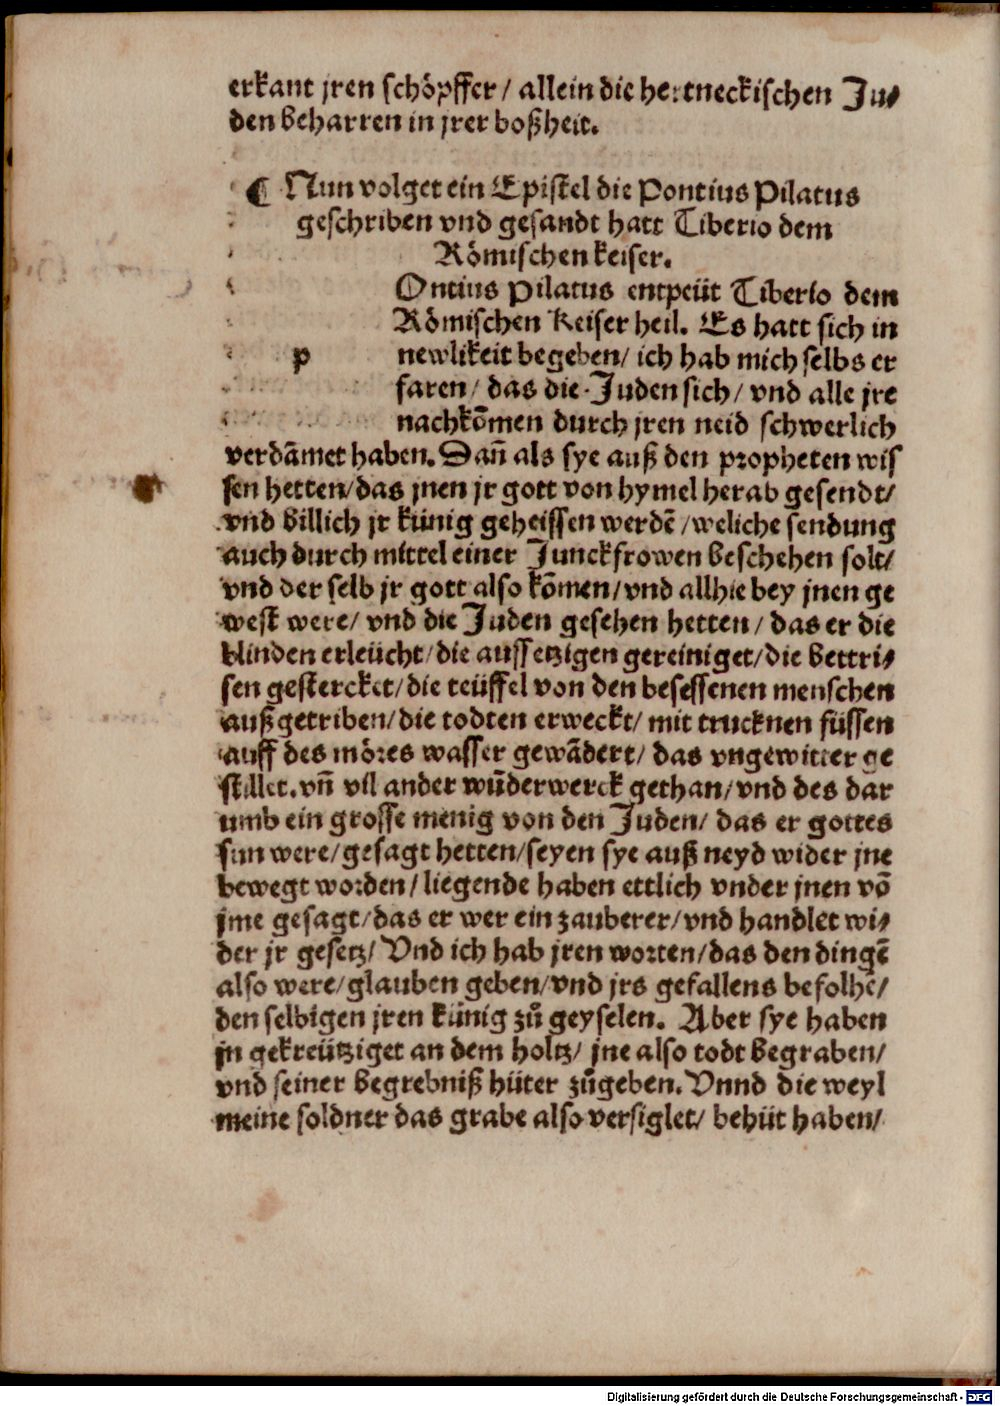 erkant jren schöpffer/ allein die hertneckischen Ju⸗
den beharren in jrer boßheit.
¶ Nun volget ein Epistel die Pontius Pilatus
geschriben vnd gesandt hatt Tiberio dem
Römischen keiser.
Ontius Pilatus entpeüt Tiberio dem
Römischen Keiser heil. Es hatt sich in
p newlikeit begeben/ ich hab mich selbs er
faren/ das die Juden sich/ vnd alle jre
nachkōmen durch jren neid schwerlich
verdāmet haben. Dan̄ als sye auß den propheten wis
sen hetten/das jnen jr gott von hymel herab gesendt/
vnd billich jr künig geheissen werdē/weliche sendung
auch durch mittel einer Junckfrowen beschehen solt/
vnd der selb jr gott also kōmen/vnd allhie bey jnen ge
west were/ vnd die Juden gesehen hetten/ das er die
blinden erleücht/die aussetzigen gereiniget/die bettri⸗
sen gestercket/die teüffel von den besessenen menschen
außgetriben/die todten erweckt/ mit trucknen füssen
auff des möres wasser gewādert/ das vngewitter ge
stillet. vn̄ vil ander wūderwerck gethan/vnd des dar
umb ein grosse menig von den Juden/ das er gottes
sun were/gesagt hetten/seyen sye auß neyd wider jne
bewegt worden/liegende haben ettlich vnder jnen vō
jme gesagt/das er wer ein zauberer/vnd handlet wi⸗
der jr gesetz/ Vnd ich hab jren worten/das den dingē
also were/glauben geben/vnd jrs gefallens befolhē/
den selbigen jren künig zů geyselen. Aber sye haben
jn gekreütziget an dem holtz/ jne also todt begraben/
vnd seiner begrebniß hüter zůgeben. Vnnd die weyl
meine soldner das grabe also versiglet/ behüt haben/
Digitalisierung gefördert durch die Deutsche Forschungsgemeinschaft - DFG